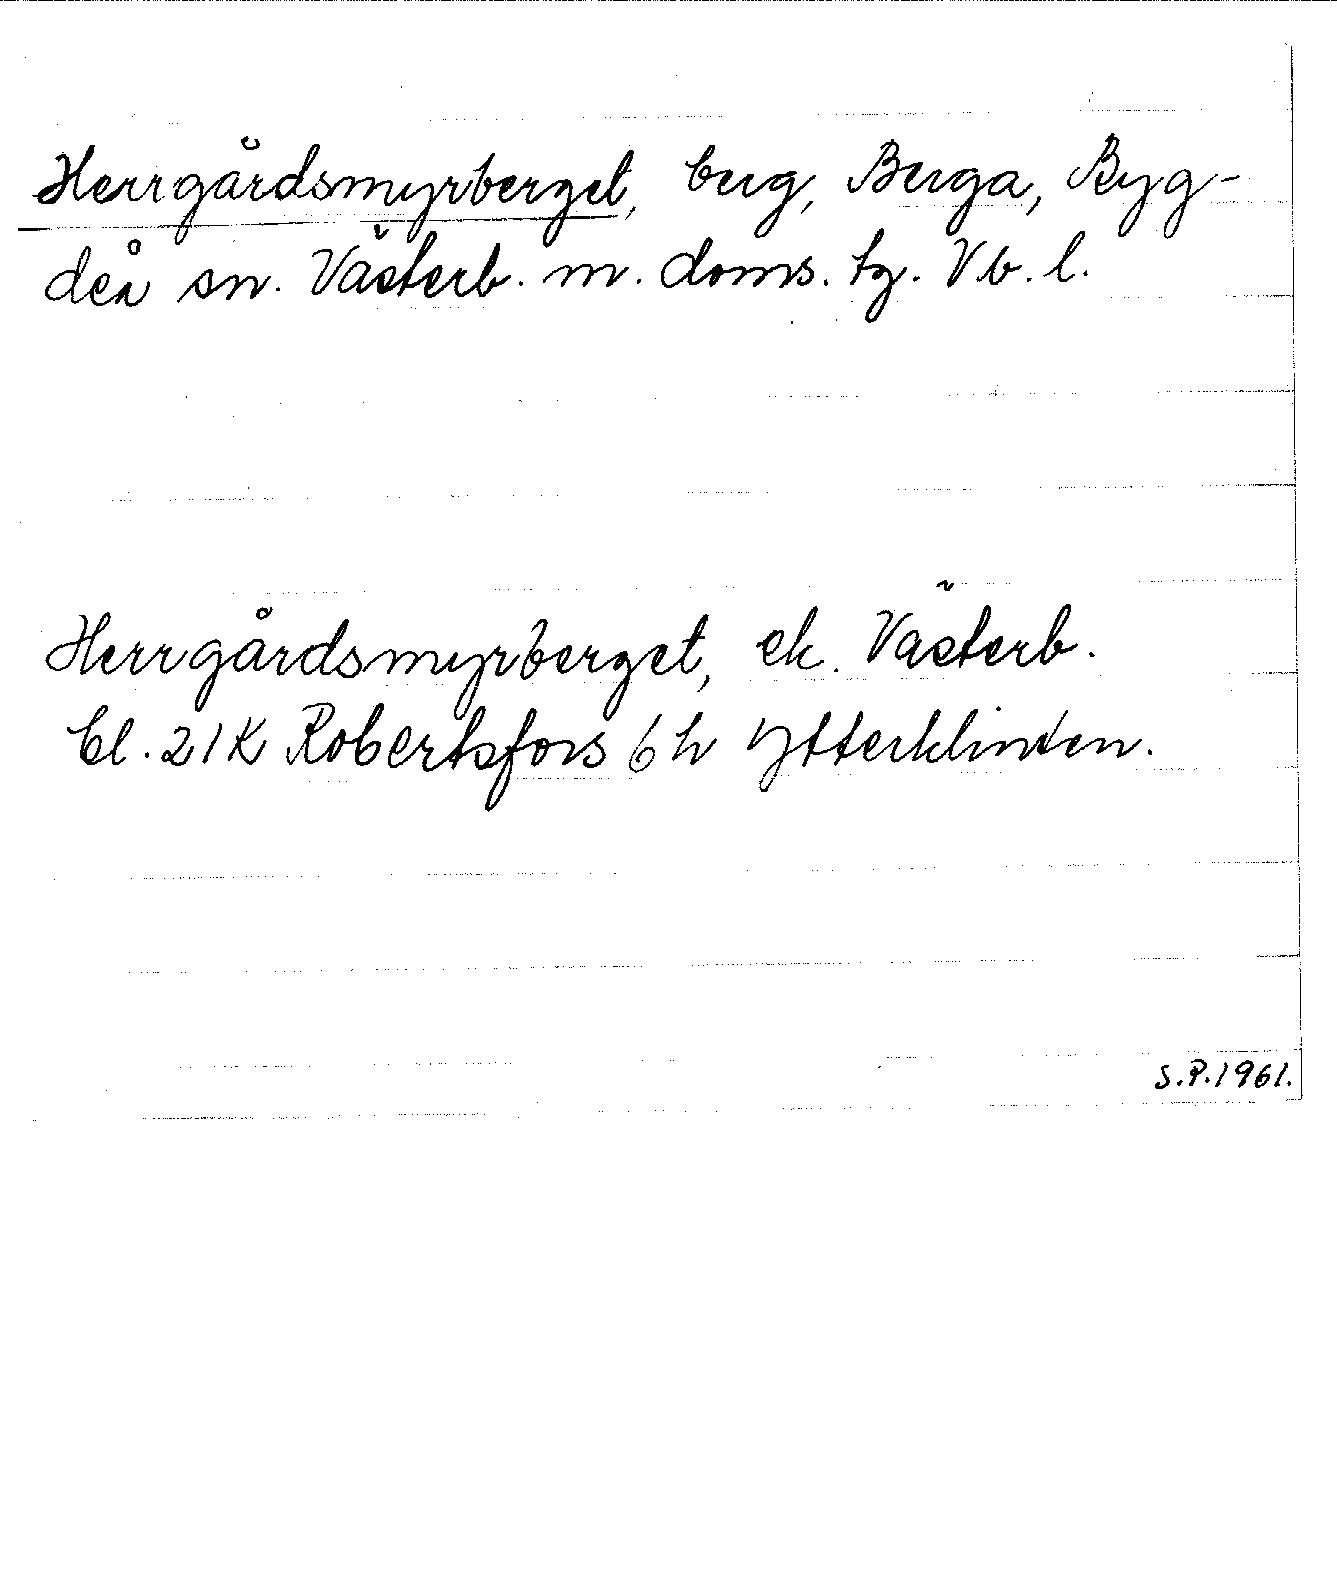 Herrgårdsmyrberget, berg, Berga, Byg-
deå sn. Västerb. m. doms. tg. Vb. l.
Herrgårdsmyrberget, ek. Västerb.
bl. 21K Robertsfors 6h Ytterklinten.
S.P.1961.